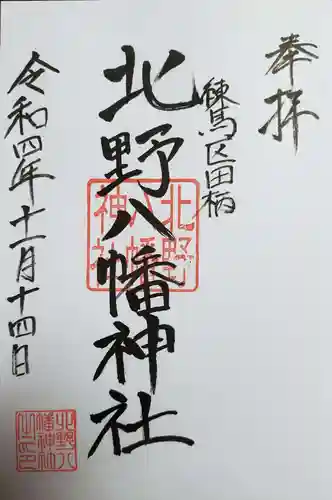 奉拝
練馬区田柄
北野八幡神社
北野
八幡
神社
令和四年十一月十四日
北野八
幡神社
之印